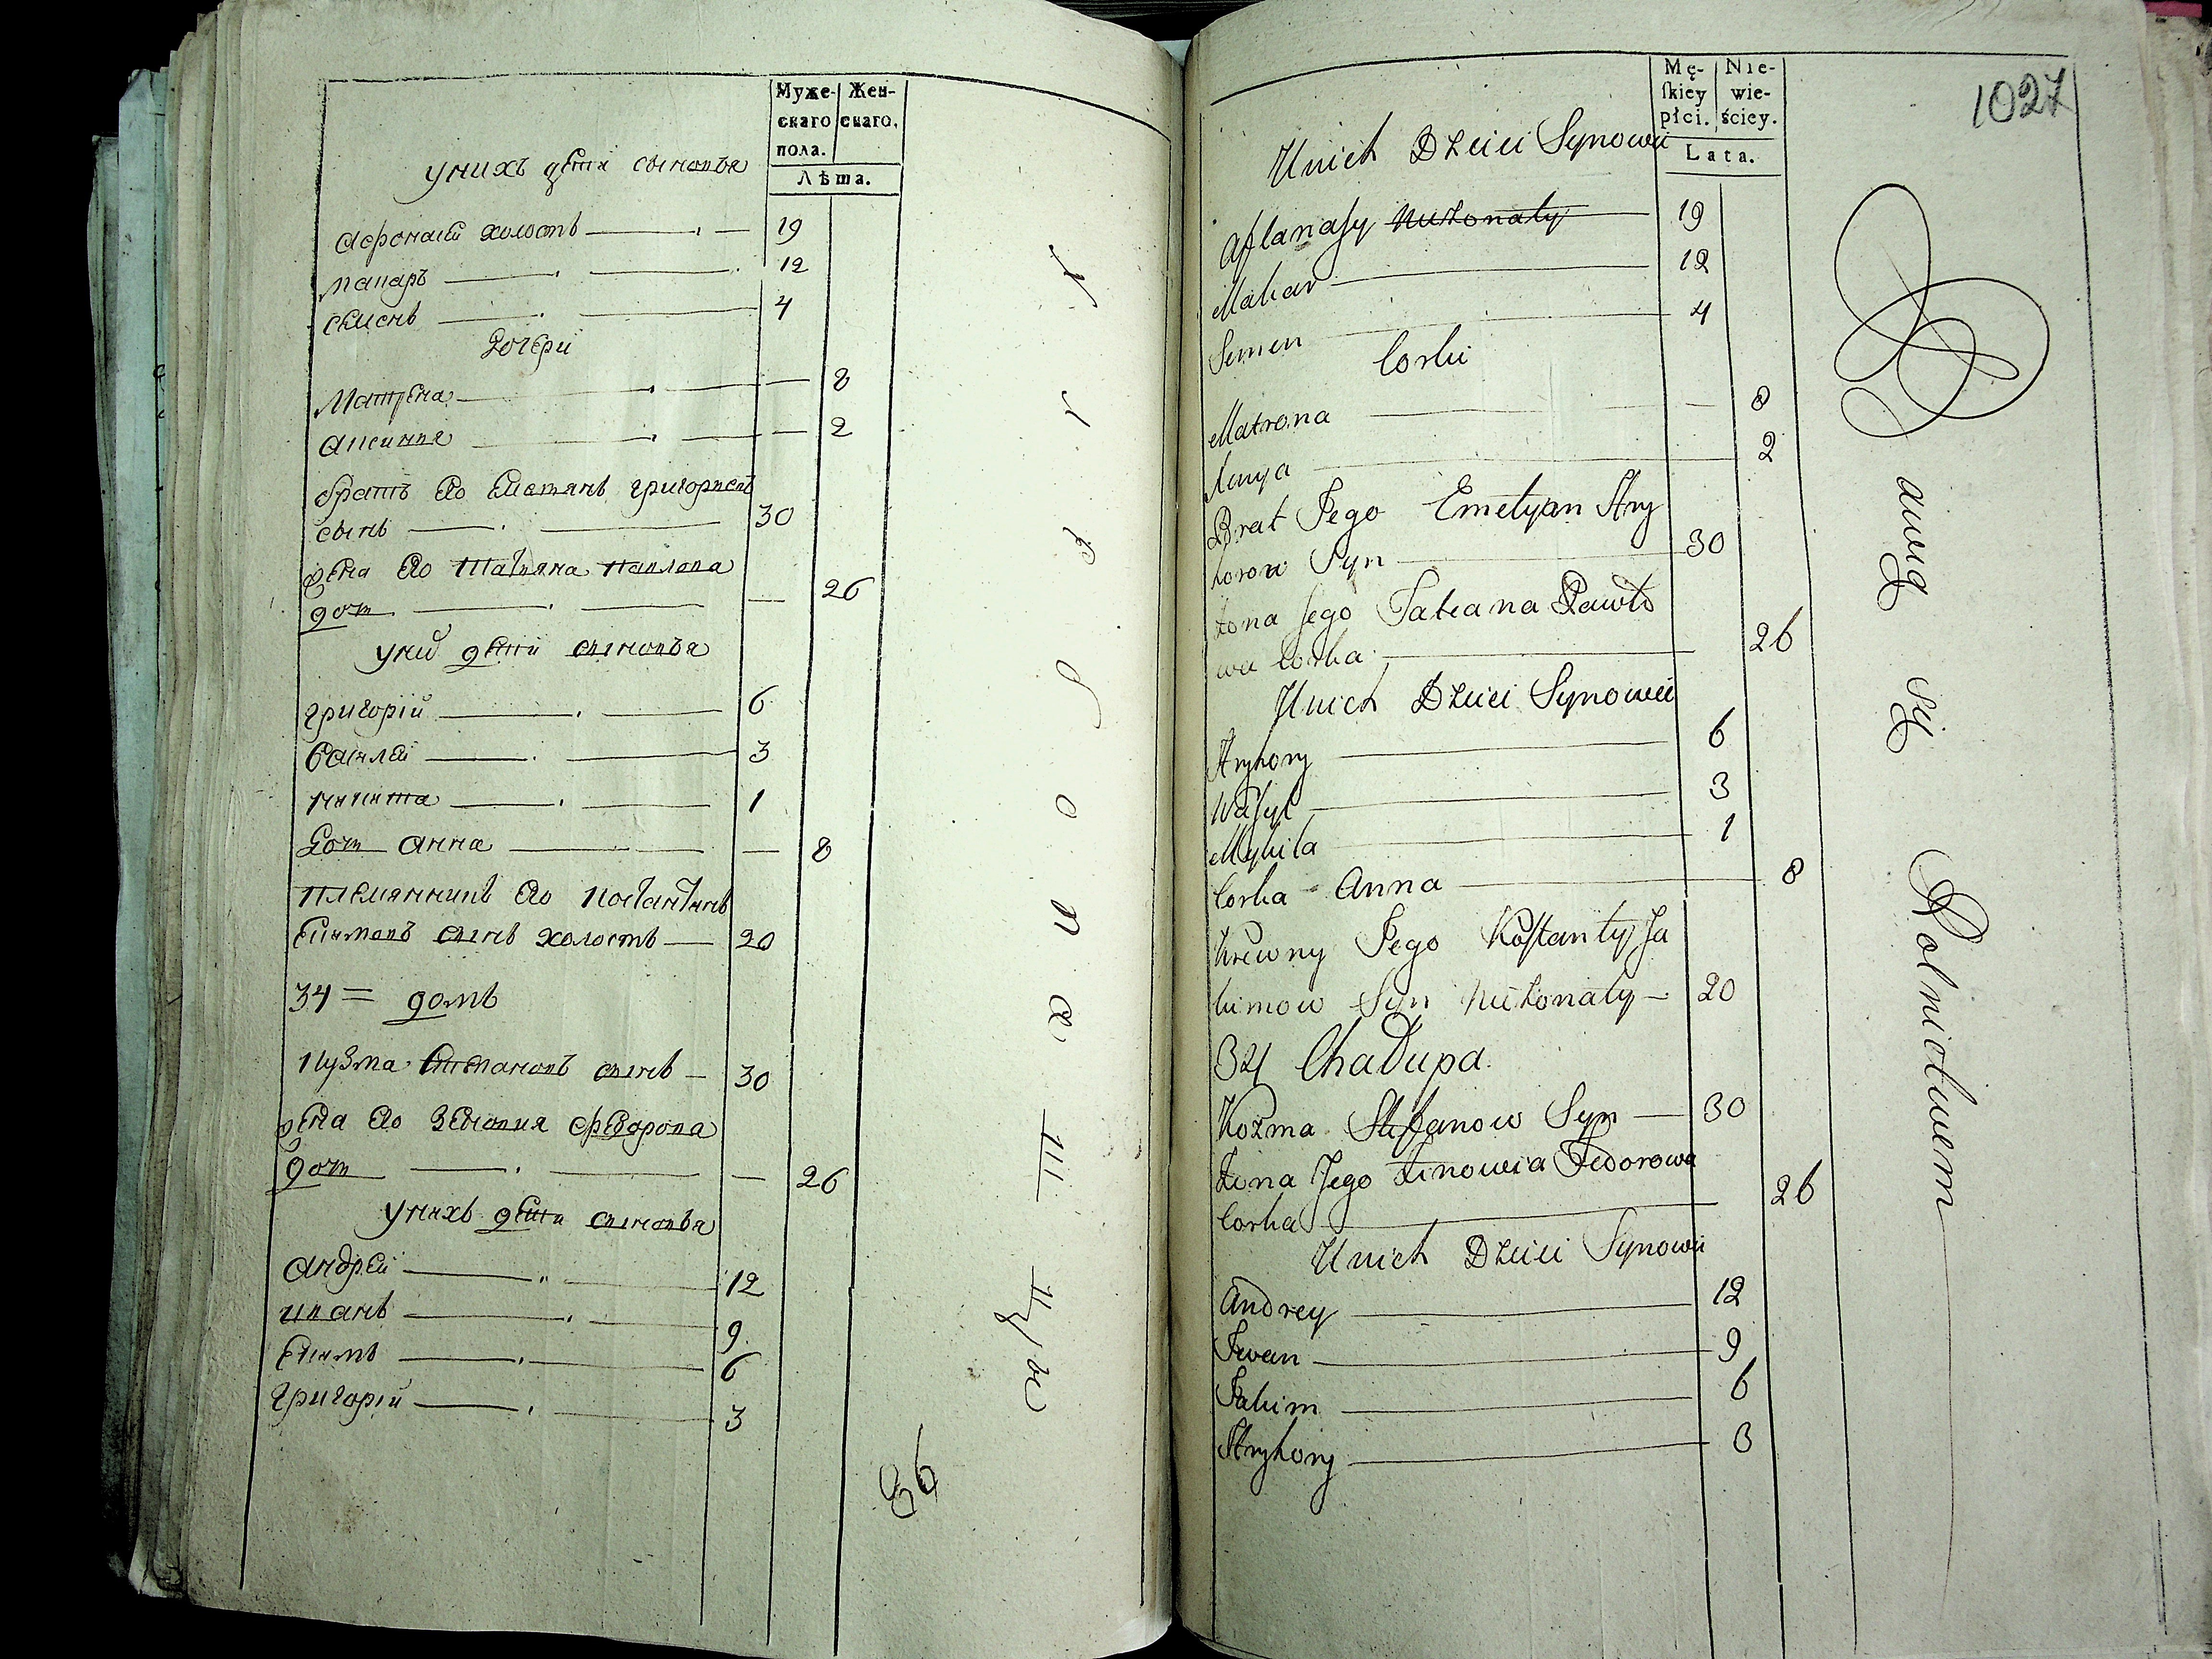 Муже-
скаго
пола.
Жен-
скаго.
Лѣта.
у нихъ дети сыновья
Афонасей холостъ 19
Макаръ 12
Семенъ 4
Дочери
Матрена — 8
Аксинья — 2
братъ Ево Емельянъ григорьевъ
сынъ 30
жена Ево Татьяна павлова
дочь — 26
у них дети сыновья
григорій 6
Василей 3
никита 1
Дочь Анна — 8
племянникъ Ево Костантинъ
Екимовъ сынъ холостъ — 20
34 = домъ
Кузма Степановъ сынъ — 30
жена Ево Зеновия Федорова
дочь — 26
у нихъ дети сыновья
Андрей 12
иванъ 9
Екимъ 6
григорій 3
36
Mę-
skiey
płci.
Nie-
wie-
ściey.
Lata.
1027
Unich Dzieci Synowie
Aflanasy Nieżonaty 19
Makar 12
Semen 4
Corki
Matrona — 8
2
Brat Jego Emelyan Hry
horow Syn 30
Żona Jego Tatiana Pawło
wa Corka 26
Unich Dzieci Synowie
Hryhory 6
Wasyl 3
Mykita 1
Corka Anna 8
Krewny Jego Kostanty Ja
kimow Syn Nieżonaty — 20
34 Chałupa.
Kozma Stefanow Syn — 30
Żona Jego Zinowia Fedorowa
Corka 26
Unich Dzieci Synowie
Andrey 12
Iwan 9
Jakim 6
Hryhory 3